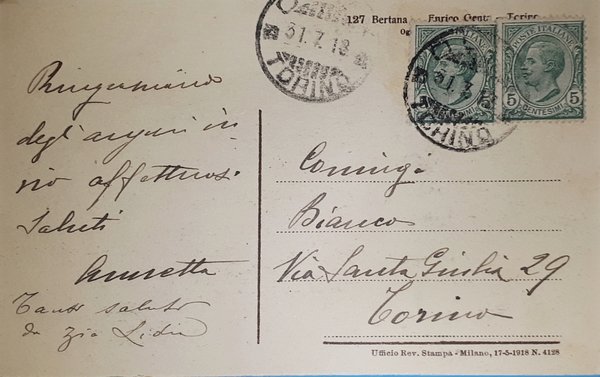 127 Bertana - Enrico Gentz - Torino
31.7.18
TORINO
POSTE ITALIANE
31.7
TORINO
5 CENTESIMI 5
Ringraziando
degli auguri in
vio affettuosi
saluti
Annetta
Tanti saluti
da Zia Lidia
Coniugi
Bianco
Via Santa Giulia 29
Torino
Ufficio Rev. Stampa - Milano, 17-5-1918 N. 4128